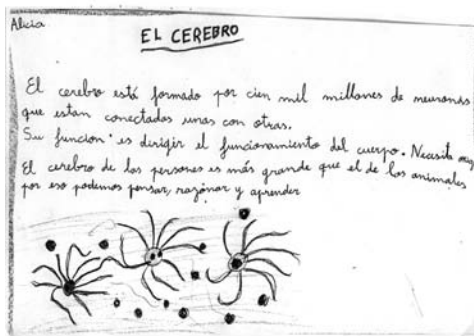 Alicia
EL CEREBRO
El cerebro está formado por cien mil millones de neuronas
que estan conectadas unas con otras.
Su funcion es dirigir el funcionamiento del cuerpo. Necesita
El cerebro de las personas es más grande que el de los animales
por eso podemos pensar, razonar y aprender